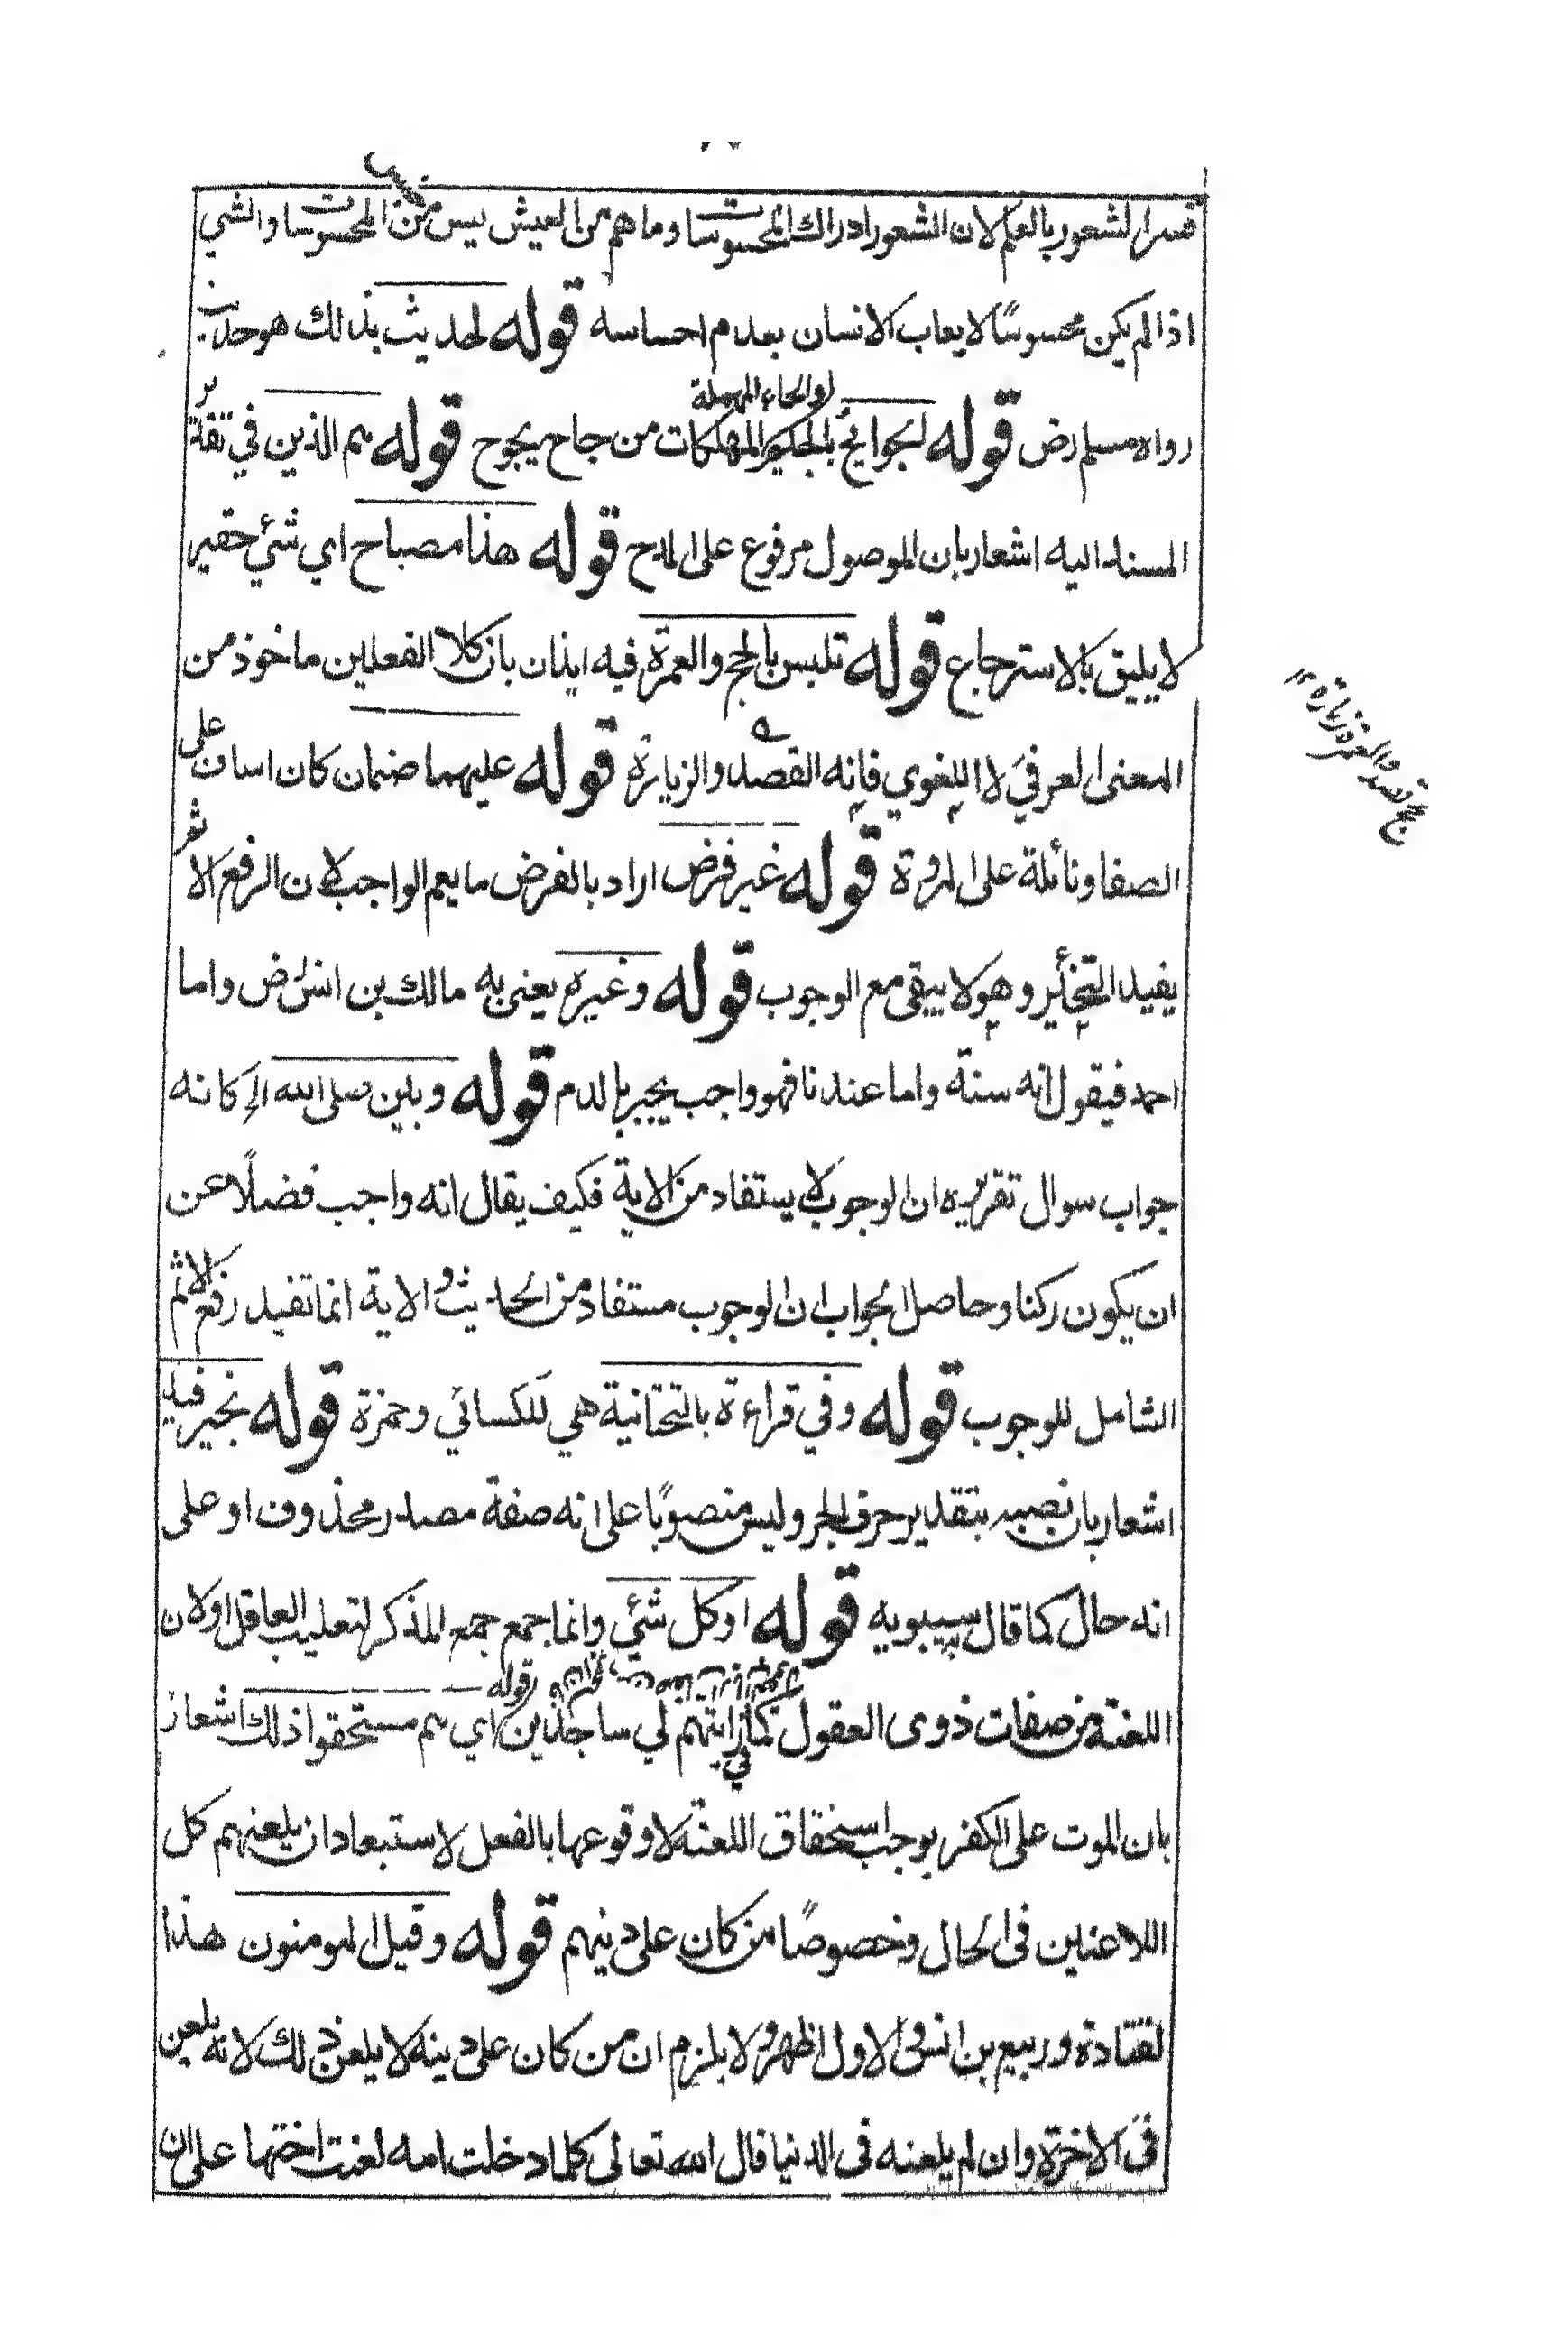 فسر الشعور بالعلم لان الشعور ادراك المحسوسات وما هم من العيش ليس من المحسوسات والشي
اذا لم يكن محسوسًا لا يعاب الانسان بعدم احساسه قوله لحديث بذلك هو حديث
رواه مسلم رض قوله الجوايح بالجيم المهلكات من جاح يجوح قوله هم الذين في تقدير
اوالحاء المهملة
المسند اليه اشعار بان الموصول مرفوع على المدح قوله هذا مصباح اي شئ حقير
لا يليق بالاسترجاع قوله تلبس بالحج والعمرة فيه ايذان بان كلا الفعلين ماخوذ من
المعنى العرفي لا اللغوي فانه القصد والزيارة قوله عليهما صنمان كان اساف على
حج قصد والعمرة زيارة
الصفا ونائلة على المروة قوله غير فرض اراد بالفرض ما يعم الواجب لان الرفع الاثم
يفيد التخير وهو لا يبقى مع الوجوب قوله وغيره يعنى به مالك بن انس رض واما
احمد فيقول انه سنة واما عندنا فهو واجب يجبر بالدم قوله وبين صلى الله الخ كانه
جواب سوال تقريره ان الوجوب لا يستفاد من الاية فكيف يقال انه واجب فضلًا عن
ان يكون ركنا وحاصل الجواب ان الوجوب مستفاد من الحديث والاية انما تفيد رفع الاثم
الشامل للوجوب قوله وفي قراءة بالتحتانية هي للكسائي وحمزة قوله بخير فيه
اشعار بان نصبه بتقدير حرف الجر وليس منصوبًا على انه صفة مصدر محذوف او على
انه حال كما قال سيبويه قوله او كل شئ وانما جمع جمع المذكر لتغليب العاقل او لان
اللعنة من صفات ذوى العقول كما في رايتهم لي ساجدين قوله اي هم مستحقوا ذلك اشعار
بان الموت على الكفر يوجب استحقاق اللعنة لا وقوعها بالفعل لاستبعاد ان يلعنهم كل
اللاعنين فى الحال وخصوصًا من كان على دينهم قوله وقيل المومنون هذا
لقتادة وربيع بن انس والاول اظهر ولا يلزم ان من كان على دينه لا يلعن ذلك لانه يلعن
فى الاخرة وان لم يلعنه فى الدنيا قال الله تعالى كلما دخلت امه لعنت اختها على ان